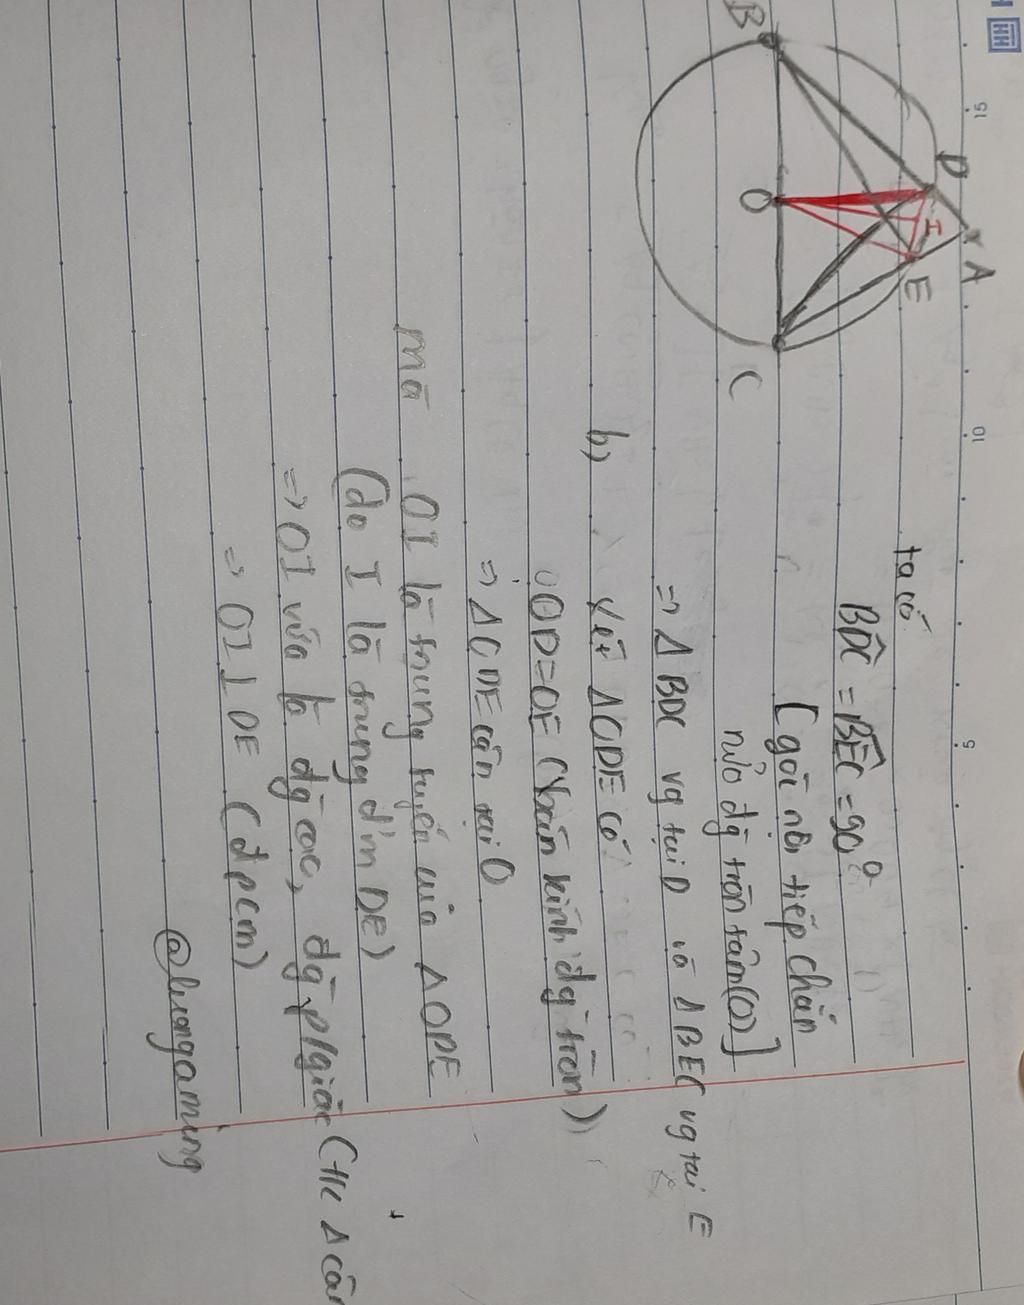 15
10
5
B
D
A
I
E
O
C
ta có
BD̂C = BÊC = 90°
[góc nội tiếp chắn
nửa đg tròn tâm(O)]
=> Δ BDC vg tại D và Δ BEC vg tại E
b) Xét Δ ODE có
OD=OE (bán kính đg tròn)
=> Δ ODE cân tại O
mà OI là trung tuyến của Δ ODE
(do I là trung đ'm DE)
=> OI vừa là đg cao, đg p/giác (t/c Δ cân
=> OI ⊥ DE (đpcm)
@luongaming